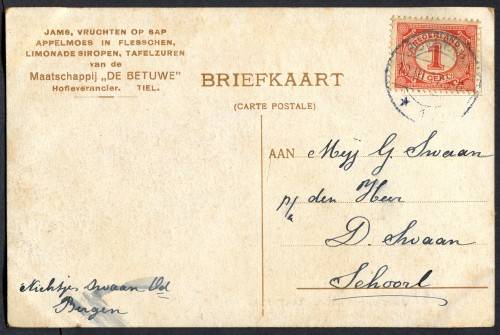 JAMS, VRUCHTEN OP SAP
APPELMOES IN FLESSCHEN,
LIMONADE SIROPEN, TAFELZUREN
van de
Maatschappij „DE BETUWE"
Hofleverancier. TIEL.
BRIEFKAART
(CARTE POSTALE)
NEDERLAND
1
CENT
AAN Mejj G. Swaan
p/a den Heer
D. Swaan
Schoorl
Nichtjes Swaan Od
Bergen